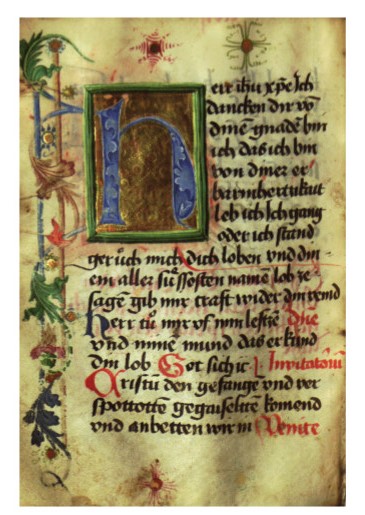 herr ihu xp̄e Ich
dancken dir vō
dinē gnadē bin
ich das ich bin
von diner er
barmhertzikait
leb ich Ich gang
oder ich stand
gerůch mich dich loben vnd din
em aller süssosten namē lob ze
sagē gib mir craft wider din veind
herr tů mir vf min lefftze die
vnd minē mund das er künd
din lob Got sich ic Inuitatoriū
Cristū den gefange vnd ver
spottottē gegaiseltē komend
vnd anbetten wir in Venite